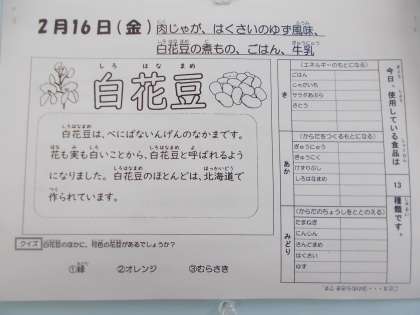 2月16日(金) 肉じゃが、はくさいのゆず風味、
白花豆の煮もの、ごはん、牛乳
しろ はな まめ
白花豆
白花豆は、べにばないんげんのなかまです。
花も実も白いことから、白花豆と呼ばれるよう
になりました。白花豆のほとんどは、北海道で
作られています。
クイズ 白花豆のほかに、何色の花豆があるでしょうか?
①緑 ②オレンジ ③むらさき
今日、使用している食品は
13
種類です。
き
(エネルギーのもとになる)
ごはん
じゃがいも
サラダあぶら
さとう
あか
(からだをつくるもとになる)
ぎゅうにゅう
ぎゅうにく
しろはなまめ
みどり
(からだのちょうしをととのえる)
たまねぎ
にんじん
さんどまめ
はくさい
ゆず